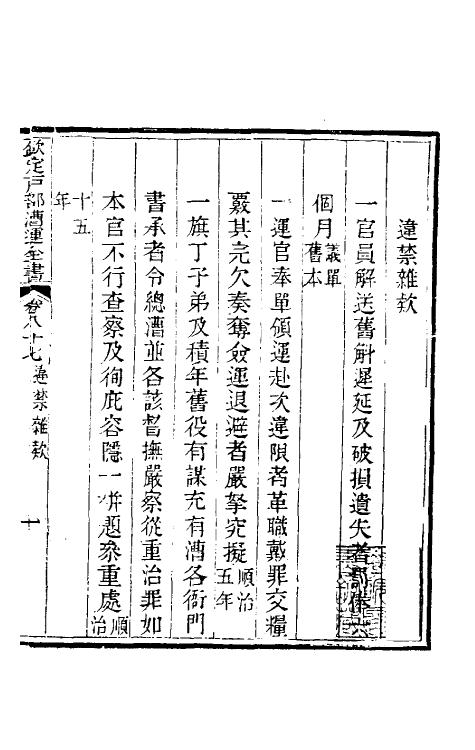 違禁雜款
一官員解送舊斛遲延及破損遺失者罰俸六
個月議單舊本
一運官奉單領運赴次違限者革職戴罪交糧
覈其完欠奏奪僉運退避者嚴拏究擬順治五年
一旗丁子弟及積年舊役有謀充有漕各衙門
書承者令總漕並各該督撫嚴察從重治罪如
本官不行查察及徇庇容隱一併題叅重處順治
十五年
欽定戶部漕運全書 卷八十七 違禁雜款 十